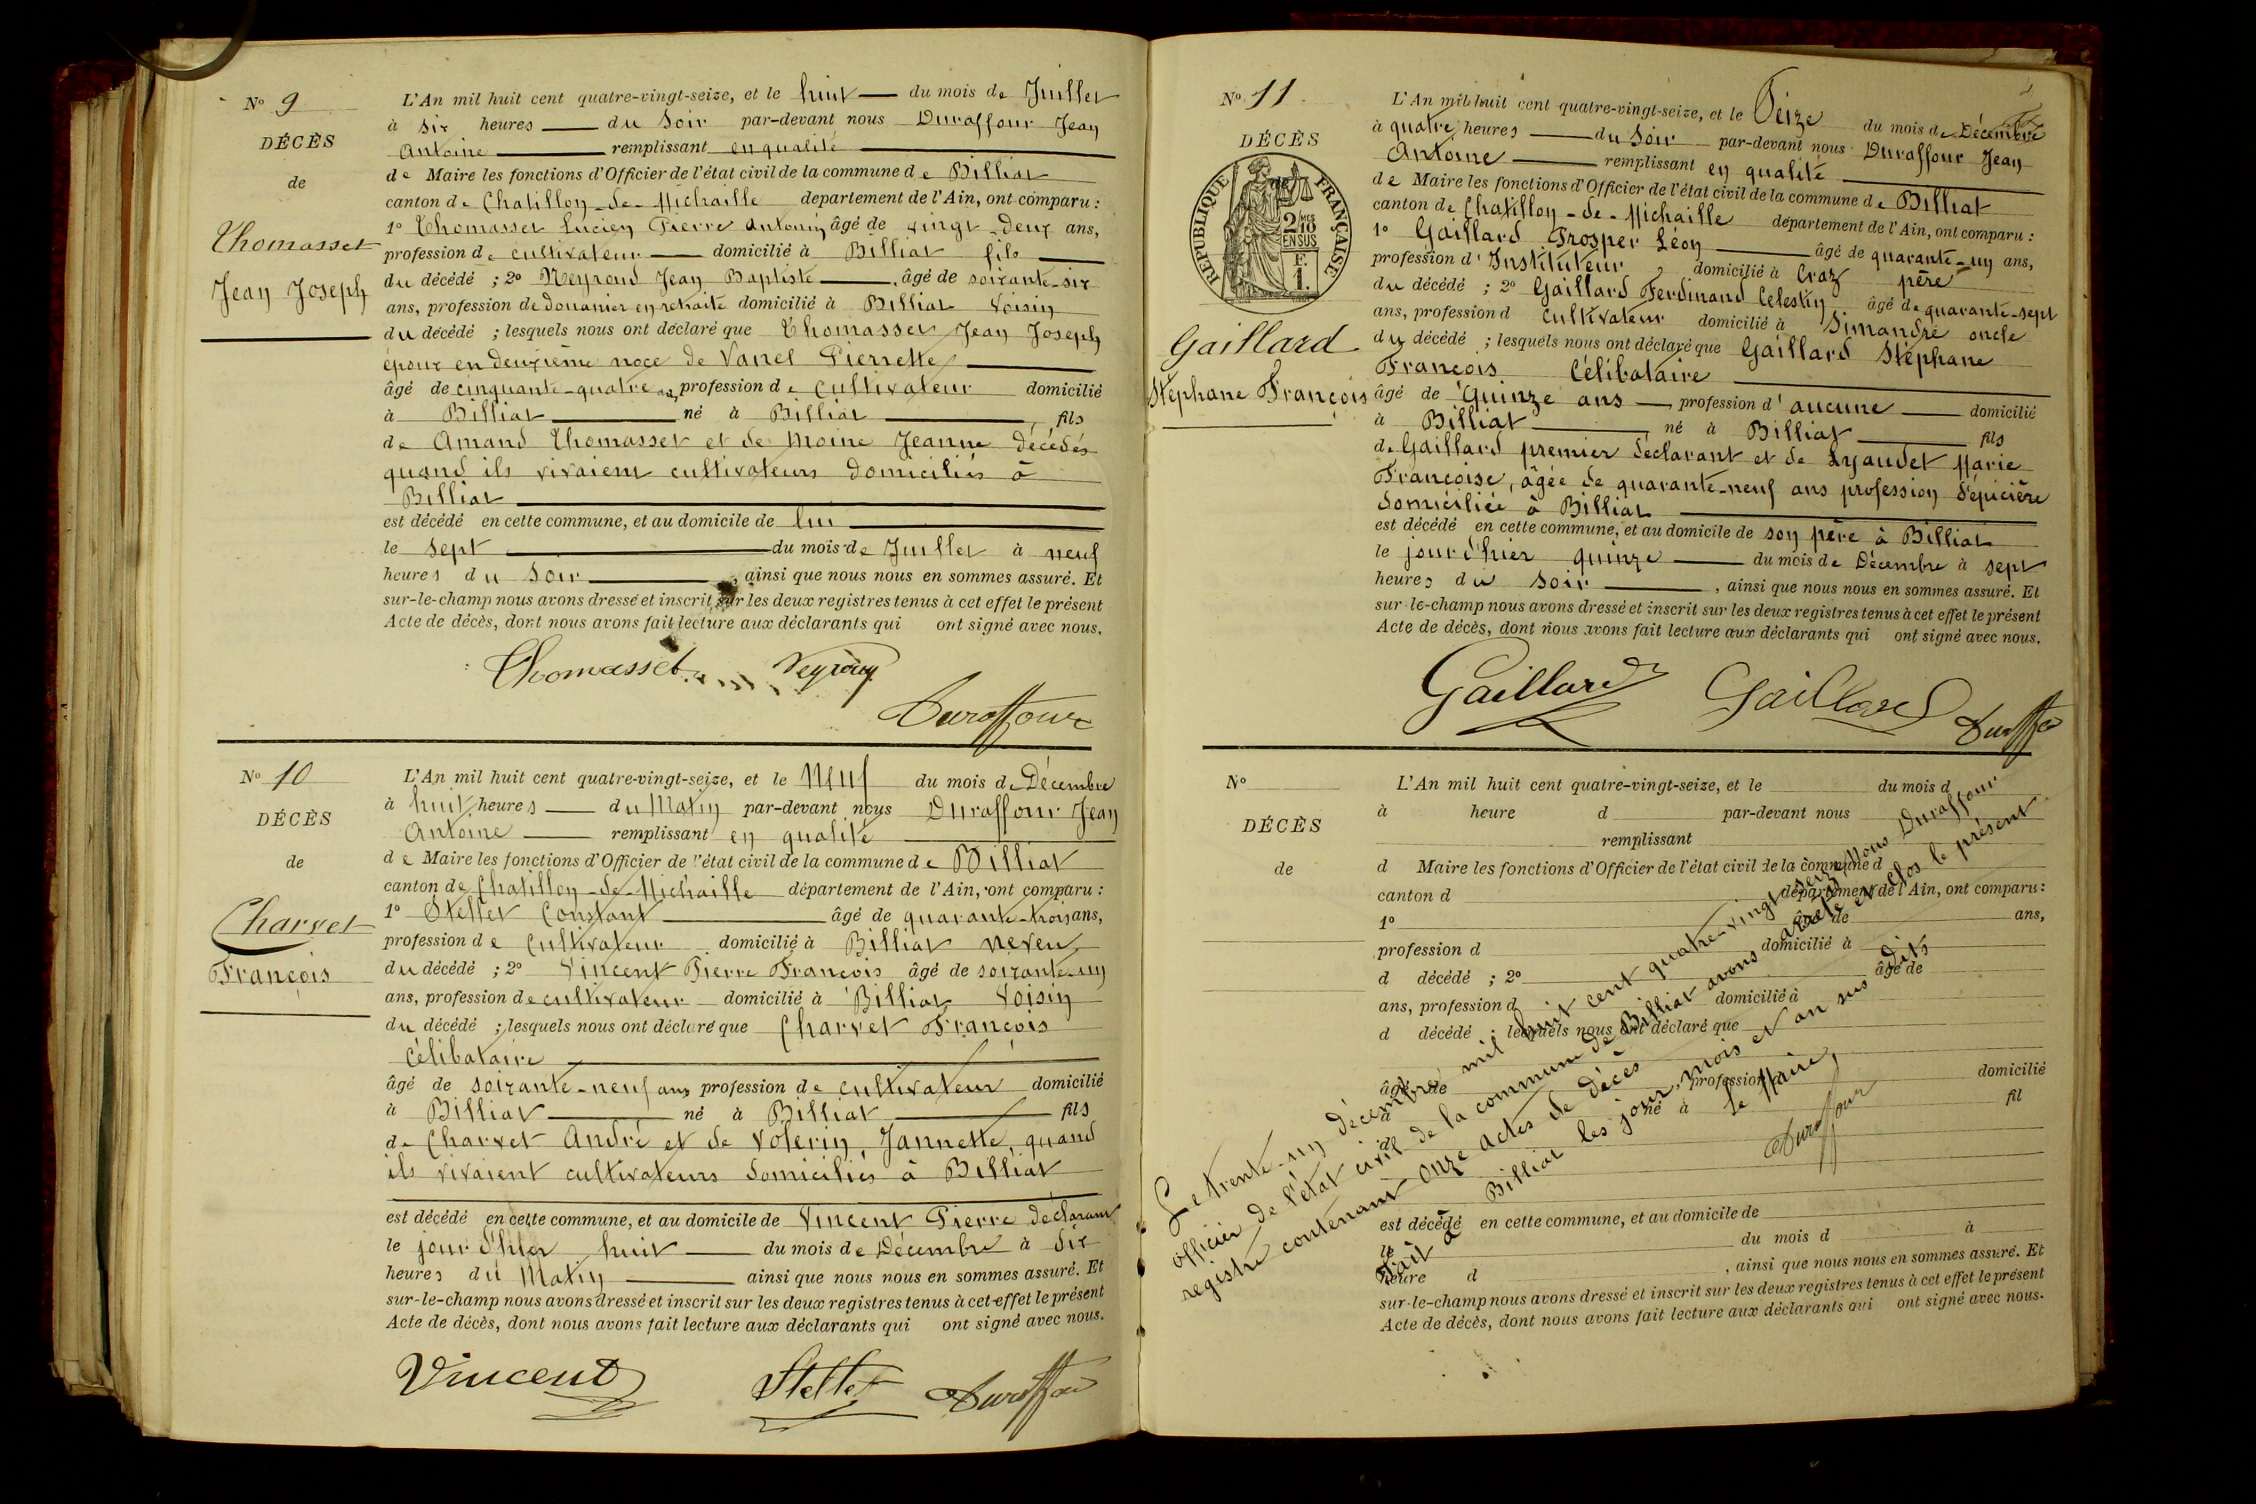 N° 9
DÉCÈS
de
Thomasset
Jean Joseph
L'An mil huit cent quatre-vingt-seize, et le huit du mois de Juillet
à six heures du Soir par-devant nous Duraffour Jean
Antoine remplissant en qualité
de Maire les fonctions d'Officier de l'état civil de la commune de Billiat
canton de Chatillon-de-Michaille departement de l'Ain, ont comparu :
1° Thomasset Lucien Pierre Antonin âgé de vingt-deux ans,
profession de cultivateur domicilié à Billiat fils
du décédé ; 2° Neyroud Jean Baptiste, âgé de soixante-six
ans, profession de douanier en retraite domicilié à Billiat Voisin
du décédé ; lesquels nous ont déclaré que Thomasset Jean Joseph
époux en deuxième noce de Vanel Pierrette
âgé de cinquante-quatre ans, profession de cultivateur domicilié
à Billiat né à Billiat, fils
de Amand Thomasset et de Moine Jeanne décédés
quand ils vivaient cultivateurs domiciliés à
Billiat
est décédé en cette commune, et au domicile de lui
le sept du mois de Juillet à neuf
heures du Soir, ainsi que nous nous en sommes assuré. Et
sur-le-champ nous avons dressé et inscrit sur les deux registres tenus à cet effet le présent
Acte de décès, dont nous avons fait lecture aux déclarants qui ont signé avec nous.
Thomasset Neyroud
Duraffour
N° 10
DÉCÈS
de
Charvet
François
L'An mil huit cent quatre-vingt-seize, et le Neuf du mois de Décembre
à huit heures du Matin par-devant nous Duraffour Jean
Antoine remplissant en qualité
de Maire les fonctions d'Officier de l'état civil de la commune de Billiat
canton de Chatillon-de-Michaille département de l'Ain, ont comparu :
1° Stellet Constant âgé de quarante-trois ans,
profession de cultivateur domicilié à Billiat neveu
du décédé ; 2° Vincent Pierre François âgé de soixante-un
ans, profession de cultivateur domicilié à Billiat Voisin
du décédé ; lesquels nous ont déclaré que Charvet François
Célibataire
âgé de soixante-neuf ans profession de cultivateur domicilié
à Billiat né à Billiat fils
de Charvet André et de Volerin Jannette, quand
ils vivaient cultivateurs domiciliés à Billiat
est décédé en cette commune, et au domicile de Vincent Pierre déclarant
le jour d'hier huit du mois de Décembre à six
heures du Matin ainsi que nous nous en sommes assuré. Et
sur-le-champ nous avons dressé et inscrit sur les deux registres tenus à cet effet le présent
Acte de décès, dont nous avons fait lecture aux déclarants qui ont signé avec nous.
Vincent Stellet Duraffour
N° 11
DÉCÈS
RÉPUBLIQUE FRANÇAISE
2/10 MES
EN SUS
F.
1.
Gaillard
Stéphane François
L'An mil huit cent quatre-vingt-seize, et le Seize du mois de Décembre
à quatre heures du Soir par-devant nous Duraffour Jean
Antoine remplissant en qualité
de Maire les fonctions d'Officier de l'état civil de la commune de Billiat
canton de Chatillon-de-Michaille département de l'Ain, ont comparu :
1° Gaillard Prosper Léon âgé de quarante-un ans,
profession d'Instituteur, domicilié à Craz père
du décédé ; 2° Gaillard Ferdinand Celestin âgé de quarante-sept
ans, profession d cultivateur domicilié à Simandre oncle
du décédé ; lesquels nous ont déclaré que Gaillard Stéphane
François Célibataire
âgé de Quinze ans profession d'aucune domicilié
à Billiat, né à Billiat fils
de Gaillard premier déclarant et de Lyaudet Marie
Françoise, âgée de quarante-neuf ans profession d'épicière
domiciliée à Billiat
est décédé en cette commune, et au domicile de son père à Billiat
le jour d'hier quinze du mois de Décembre à sept
heures du soir, ainsi que nous nous en sommes assuré. Et
sur-le-champ nous avons dressé et inscrit sur les deux registres tenus à cet effet le présent
Acte de décès, dont nous avons fait lecture aux déclarants qui ont signé avec nous.
Gaillard Gaillard Duraffour
N°
DÉCÈS
de
L'An mil huit cent quatre-vingt-seize, et le du mois d
à heure d par-devant nous
remplissant
d Maire les fonctions d'Officier de l'état civil de la commune d
canton d département de l'Ain, ont comparu:
1° âgé de ans,
profession d domicilié à
d décédé ; 2° âgé de
ans, profession d domicilié à
d décédé ; lesquels nous ont déclaré que
âgé de profession d domicilié
à né à fil
de
est décédé en cette commune, et au domicile de
le du mois d à
heure d, ainsi que nous nous en sommes assuré. Et
sur-le-champ nous avons dressé et inscrit sur les deux registres tenus à cet effet le présent
Acte de décès, dont nous avons fait lecture aux déclarants qui ont signé avec nous.
Le trente-un décembre mil huit cent quatre-vingt-seize, Nous Duraffour
officier de l'état civil de la commune de Billiat avons arrêté et clos le présent
registre contenant onze actes de décès
Fait à Billiat les jour, mois et an sus dits
Le Maire,
Duraffour